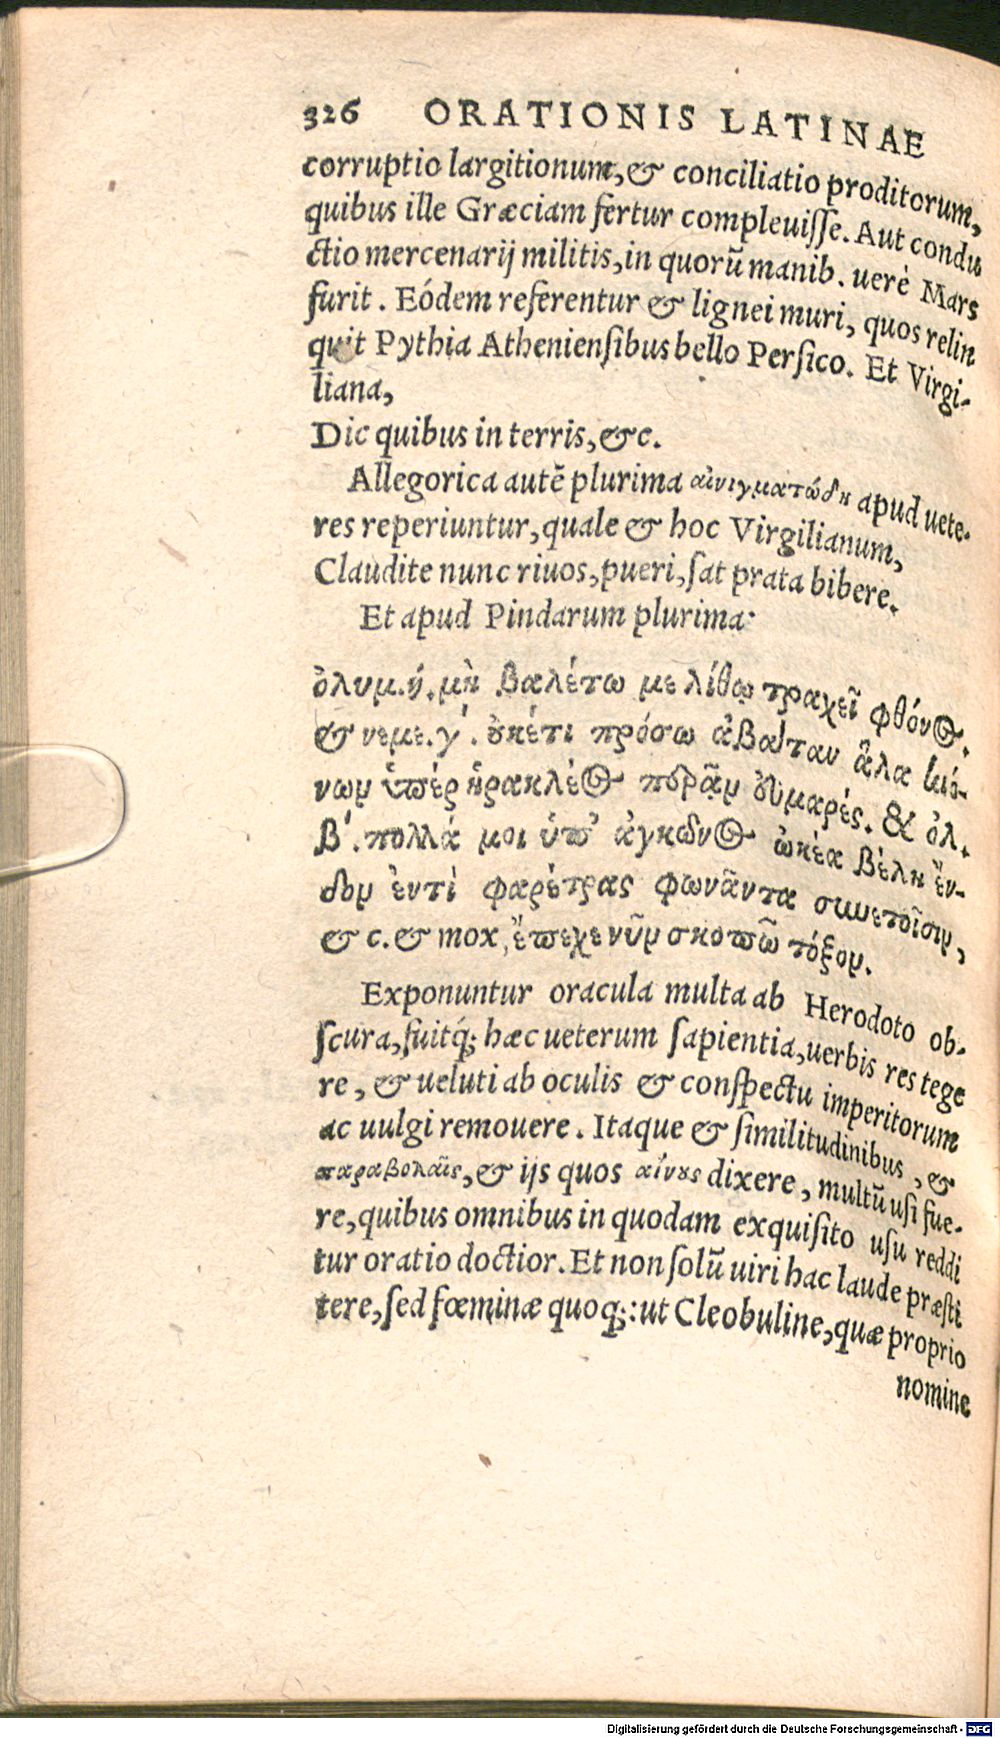 326 ORATIONIS LATINAE
corruptio largitionum, & conciliatio proditorum,
quibus ille Græciam fertur compleuisse. Aut condu
ctio mercenarij militis, in quorũ manib. uerè Mars
furit. Eódem referentur & lignei muri, quos relin
quit Pythia Atheniensibus bello Persico. Et Virgi-
liana,
Dic quibus in terris, &c.
Allegorica autẽ plurima αἰνιγματώδη apud uete-
res reperiuntur, quale & hoc Virgilianum,
Claudite nunc riuos, pueri, sat prata bibere.
Et apud Pindarum plurima:
ὀλυμ. ή. μὴ βαλέτω με λίθῳ τραχεῖ φθόνος.
& νεμε. γ΄. οὐκέτι πρόσω ἀβάταν ἅλα κιό-
νων ὑπὲρ ἡρακλέος περᾷν εὐμαρές. & ὀλ.
β΄. πολλά μοι ὑπ’ ἀγκῶνος ὠκέα βέλη ἔν-
δον ἐντὶ φαρέτρας φωνᾶντα συνετοῖσιν,
& c. & mox, ἔπεχε νῦν σκοπῶ τόξον.
Exponuntur oracula multa ab Herodoto ob-
scura, fuitq́; hæc ueterum sapientia, uerbis res tege
re, & ueluti ab oculis & conspectu imperitorum
ac uulgi remouere. Itaque & similitudinibus, &
παραβολαῖς, & ijs quos αἴνους dixere, multũ usi fue-
re, quibus omnibus in quodam exquisito usu reddi
tur oratio doctior. Et non solũ uiri hac laude præsti
tere, sed fœminæ quoq;: ut Cleobuline, quæ proprio
nomine
Digitalisierung gefördert durch die Deutsche Forschungsgemeinschaft - DFG